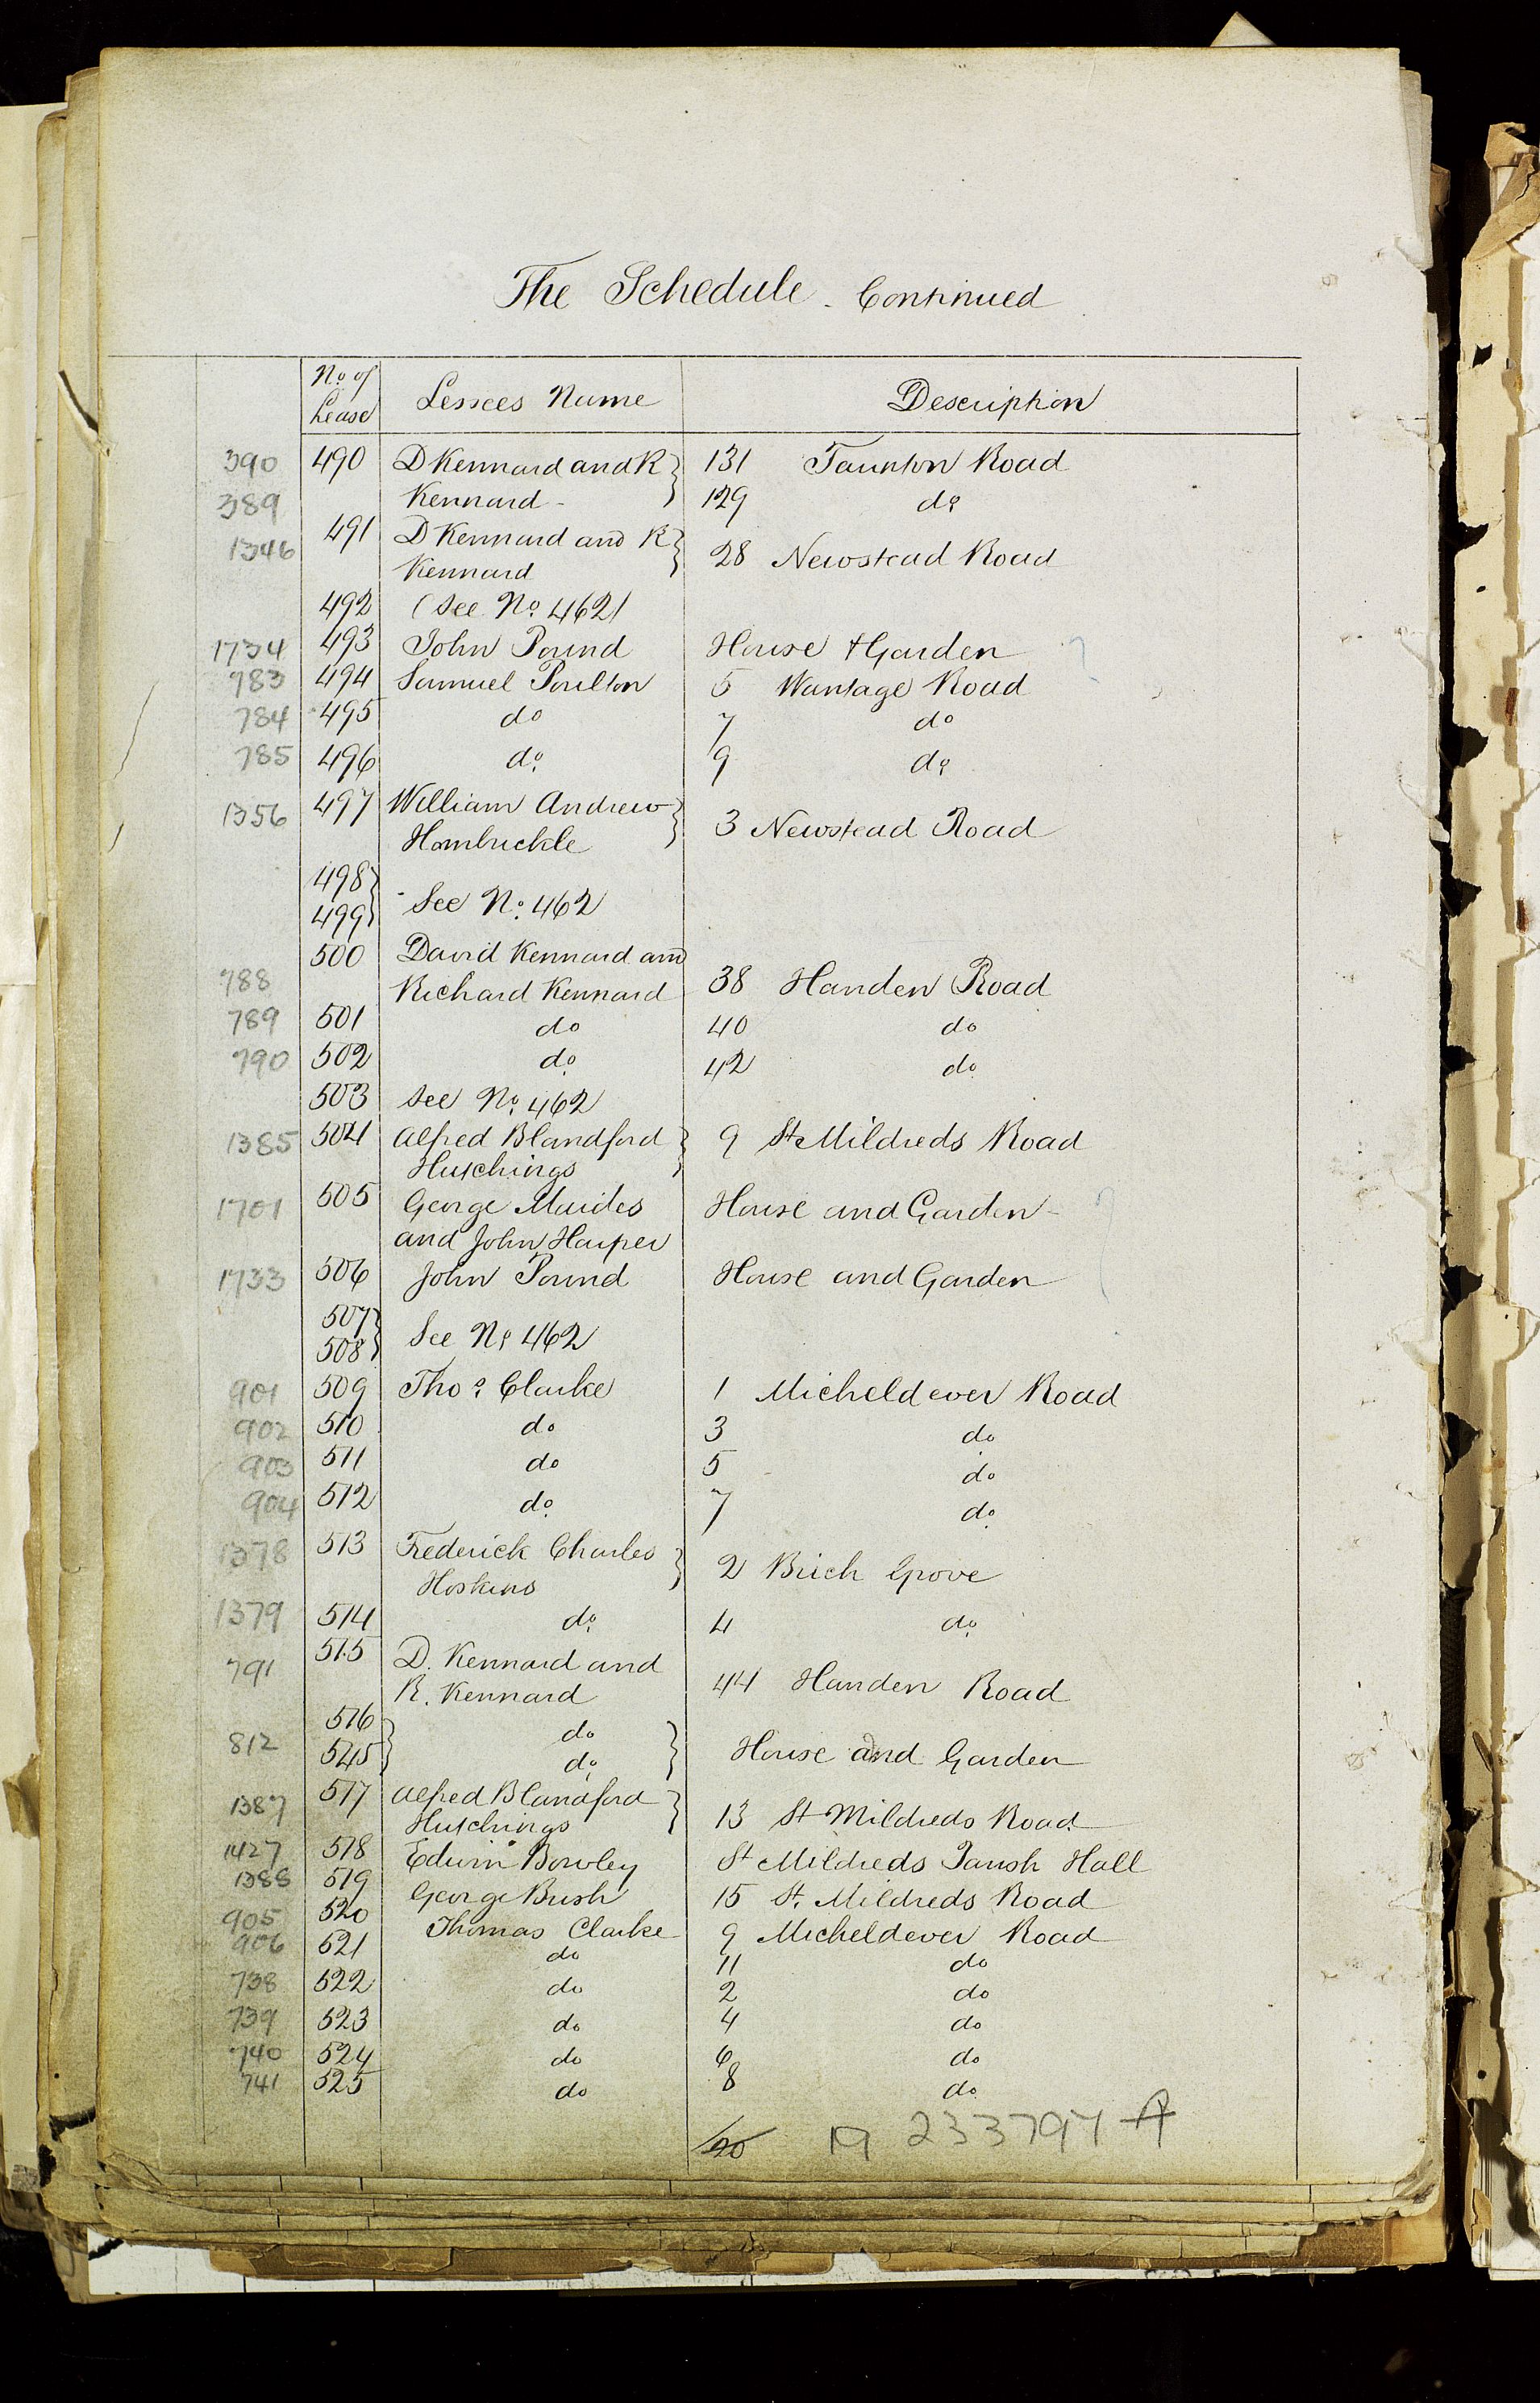 The Schedule - Continued
No. of Lease | Lessees Name | Description
390 | 490 | D Kennard and R | 131 Taunton Road
389 | Kennard - | 129 do
1346 | 491 | D Kennard and R | 28 Newstead Road
Kennard
492 | (See No. 462)
1734 | 493 | John Pound | House & Garden ?
783 | 494 | Samuel Poulton | 5 Wantage Road
784 | 495 | do | 7 do
785 | 496 | do | 9 do
1356 | 497 | William Andrew | 3 Newstead Road
Hornbuckle
498
499 | See No. 462
500 | David Kennard and
788 | Richard Kennard | 38 Handen Road
789 | 501 | do | 40 do
790 | 502 | do | 42 do
503 | See No. 462
1385 | 504 | Alfred Blandford | 9 St Mildreds Road
Hutchings
1701 | 505 | George | House and Garden -
and John Harper
1733 | 506 | John Pound | House and Garden
507
508 | See No 462
901 | 509 | Thos Clarke | 1 Micheldever Road
902 | 510 | do | 3 do
903 | 511 | do | 5 do
904 | 512 | do | 7 do
1378 | 513 | Frederick Charles | 2 Birch Grove
Hoskins
1379 | 514 | do | 4 do
791 | 515 | D. Kennard and | 44 Handen Road
R. Kennard
812 | 516 | do | House and Garden
545 | do
1387 | 517 | Alfred Blandford | 13 St Mildreds Road
Hutchings
1427 | 518 | Edwin Bowley | St Mildreds Parish Hall
1388 | 519 | George Bush | 15 St. Mildreds Road
905 | 520 | Thomas Clarke | 9 Micheldever Road
906 | 521 | do | 11 do
738 | 522 | do | 2 do
739 | 523 | do | 4 do
740 | 524 | do | 6 do
741 | 525 | do | 8 do
20 19 233797 A